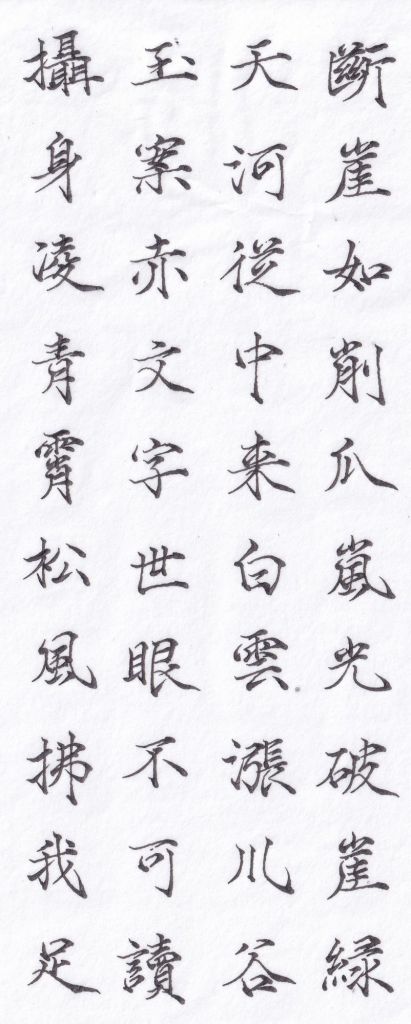 斷崖如削瓜嵐光破崖緑
天河從中来白雲漲川谷
玉案赤文字世眼不可讀
攝身凌青霄松風拂我足